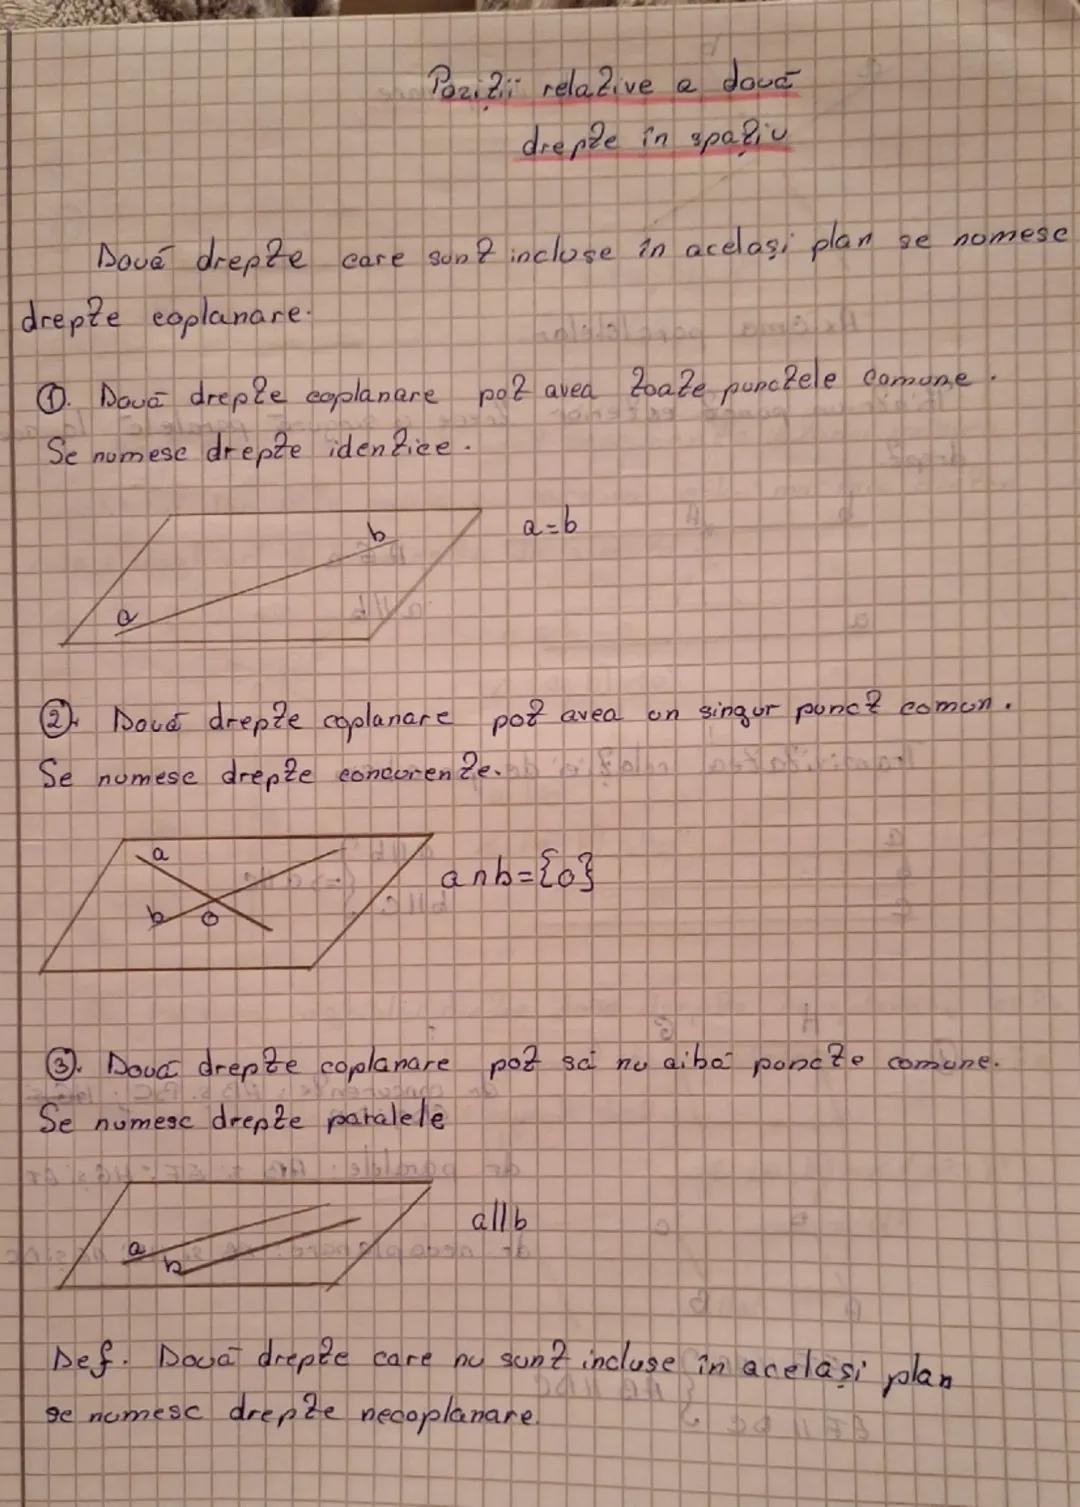 Poziții relative a două
drepte în spațiu
Două drepte care sunt incluse în același plan se numesc
drepte coplanare.
①. Două drepte coplanare pot avea toate punctele comune.
Se numesc drepte identice.
b
a=b
a
②. Două drepte coplanare pot avea un singur punct comun.
Se numesc drepte concurente.
a
a∩b={O}
b O
③. Două drepte coplanare pot să nu aibă puncte comune.
Se numesc drepte paralele
a||b
a
b
Def. Două drepte care nu sunt incluse în același plan
se numesc drepte necoplanare.